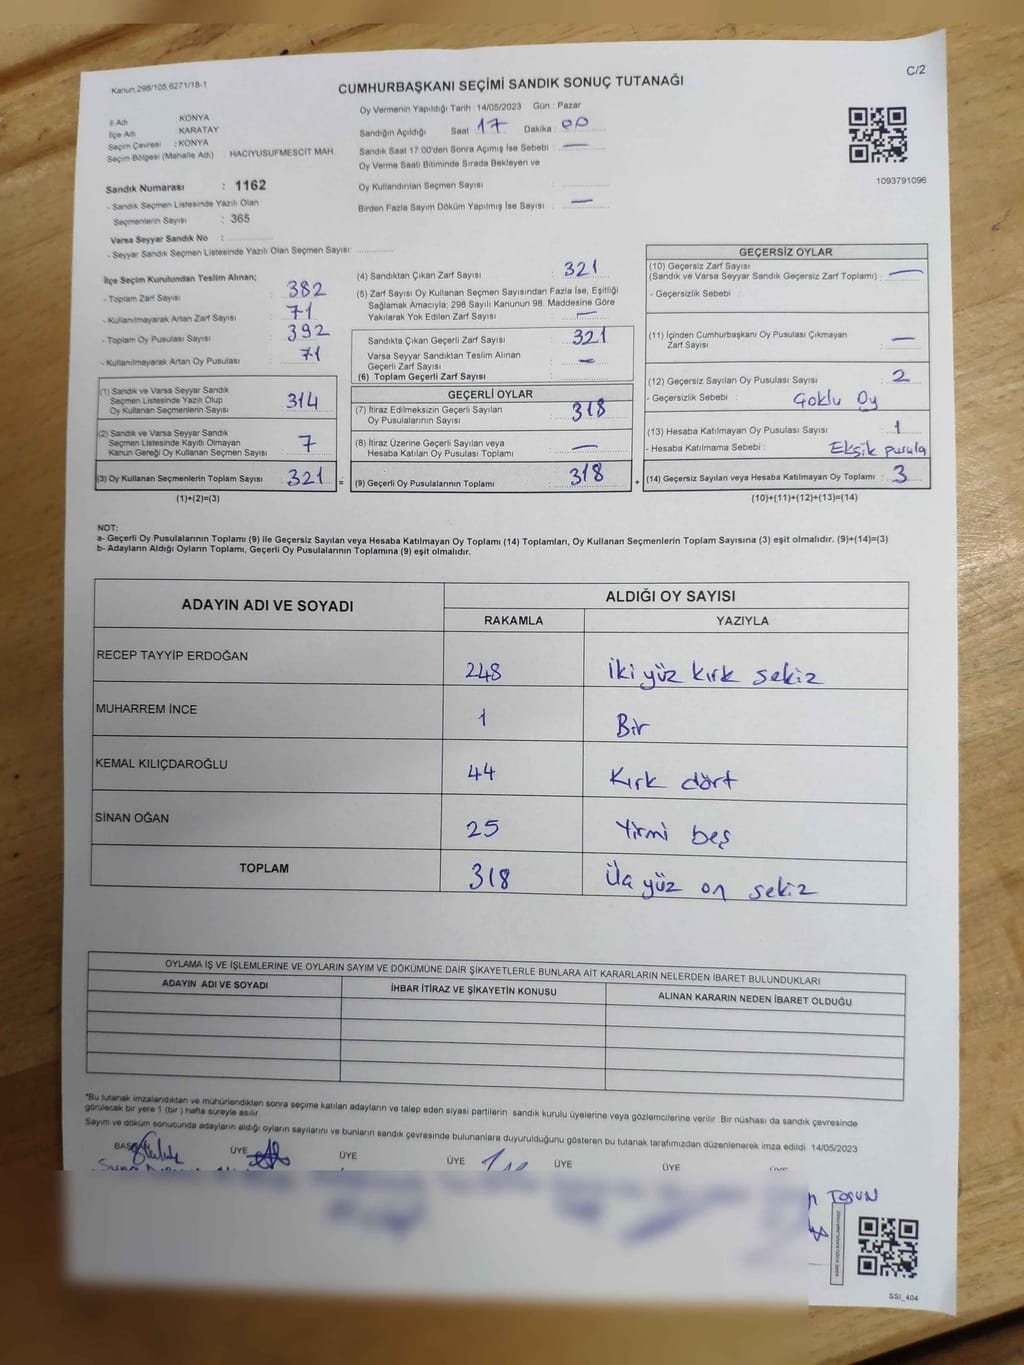 Kanun:298/105;6271/18-1
CUMHURBAŞKANI SEÇİMİ SANDIK SONUÇ TUTANAĞI
C/2
İl Adı KONYA
İlçe Adı KARATAY
Seçim Çevresi : KONYA
Seçim Bölgesi (Mahalle Adı) HACIYUSUFMESCİT MAH.
Sandık Numarası : 1162
- Sandık Seçmen Listesinde Yazılı Olan
Seçmenlerin Sayısı : 365
Varsa Seyyar Sandık No :
- Seyyar Sandık Seçmen Listesinde Yazılı Olan Seçmen Sayısı:
Oy Vermenin Yapıldığı Tarih : 14/05/2023 Gün : Pazar
Sandığın Açıldığı Saat 17 Dakika 00
Sandık Saat 17.00'den Sonra Açımış İse Sebebi : —
Oy Verme Saati Bitiminde Sırada Bekleyen ve
Oy Kullandırılan Seçmen Sayısı :
Birden Fazla Sayım Döküm Yapılmış İse Sayısı : —
1093791096
İlçe Seçim Kurulundan Teslim Alınan;
- Toplam Zarf Sayısı : 382
- Kullanılmayarak Artan Zarf Sayısı : 71
- Toplam Oy Pusulası Sayısı : 392
- Kullanılmayarak Artan Oy Pusulası : 71
(1) Sandık ve Varsa Seyyar Sandık
Seçmen Listesinde Yazılı Olup
Oy Kullanan Seçmenlerin Sayısı : 314
(2) Sandık ve Varsa Seyyar Sandık
Seçmen Listesinde Kayıtlı Olmayan
Kanun Gereği Oy Kullanan Seçmen Sayısı : 7
(3) Oy Kullanan Seçmenlerin Toplam Sayısı : 321 =
(1)+(2)=(3)
(4) Sandıktan Çıkan Zarf Sayısı : 321
(5) Zarf Sayısı Oy Kullanan Seçmen Sayısından Fazla İse, Eşitliği
Sağlamak Amacıyla; 298 Sayılı Kanunun 98. Maddesine Göre
Yakılarak Yok Edilen Zarf Sayısı : —
Sandıkta Çıkan Geçerli Zarf Sayısı : 321
Varsa Seyyar Sandıktan Teslim Alınan
Geçerli Zarf Sayısı : —
(6) Toplam Geçerli Zarf Sayısı :
GEÇERLİ OYLAR
(7) İtiraz Edilmeksizin Geçerli Sayılan
Oy Pusulalarının Sayısı : 318
(8) İtiraz Üzerine Geçerli Sayılan veya
Hesaba Katılan Oy Pusulası Toplamı : —
(9) Geçerli Oy Pusulalarının Toplamı : 318 +
GEÇERSİZ OYLAR
(10) Geçersiz Zarf Sayısı
(Sandık ve Varsa Seyyar Sandık Geçersiz Zarf Toplamı) : —
- Geçersizlik Sebebi :
(11) İçinden Cumhurbaşkanı Oy Pusulası Çıkmayan
Zarf Sayısı : —
(12) Geçersiz Sayılan Oy Pusulası Sayısı : 2
- Geçersizlik Sebebi : Çoklu Oy
(13) Hesaba Katılmayan Oy Pusulası Sayısı : 1
- Hesaba Katılmama Sebebi : Eksik pusula
(14) Geçersiz Sayılan veya Hesaba Katılmayan Oy Toplamı : 3
(10)+(11)+(12)+(13)=(14)
NOT:
a- Geçerli Oy Pusulalarının Toplamı (9) ile Geçersiz Sayılan veya Hesaba Katılmayan Oy Toplamı (14) Toplamları, Oy Kullanan Seçmenlerin Toplam Sayısına (3) eşit olmalıdır. (9)+(14)=(3)
b- Adayların Aldığı Oyların Toplamı, Geçerli Oy Pusulalarının Toplamına (9) eşit olmalıdır.
ADAYIN ADI VE SOYADI ALDIĞI OY SAYISI
RAKAMLA YAZIYLA
RECEP TAYYİP ERDOĞAN 248 İki yüz kırk sekiz
MUHARREM İNCE 1 Bir
KEMAL KILIÇDAROĞLU 44 Kırk dört
SİNAN OĞAN 25 Yirmi beş
TOPLAM 318 Üç yüz on sekiz
OYLAMA İŞ VE İŞLEMLERİNE VE OYLARIN SAYIM VE DÖKÜMÜNE DAİR ŞİKAYETLERLE BUNLARA AİT KARARLARIN NELERDEN İBARET BULUNDUKLARI
ADAYIN ADI VE SOYADI İHBAR İTİRAZ VE ŞİKAYETİN KONUSU ALINAN KARARIN NEDEN İBARET OLDUĞU
*Bu tutanak imzalandıktan ve mühürlendikten sonra seçime katılan adayların ve talep eden siyasi partilerin sandık kurulu üyelerine veya gözlemcilerine verilir. Bir nüshası da sandık çevresinde
görülecek bir yere 1 (bir) hafta süreyle asılır.
Sayım ve döküm sonucunda adayların aldığı oyların sayılarını ve bunların sandık çevresinde bulunanlara duyurulduğunu gösteren bu tutanak tarafımızdan düzenlenerek imza edildi. 14/05/2023
ÜYE ÜYE ÜYE ÜYE ÜYE
TOSUN
SSI_404